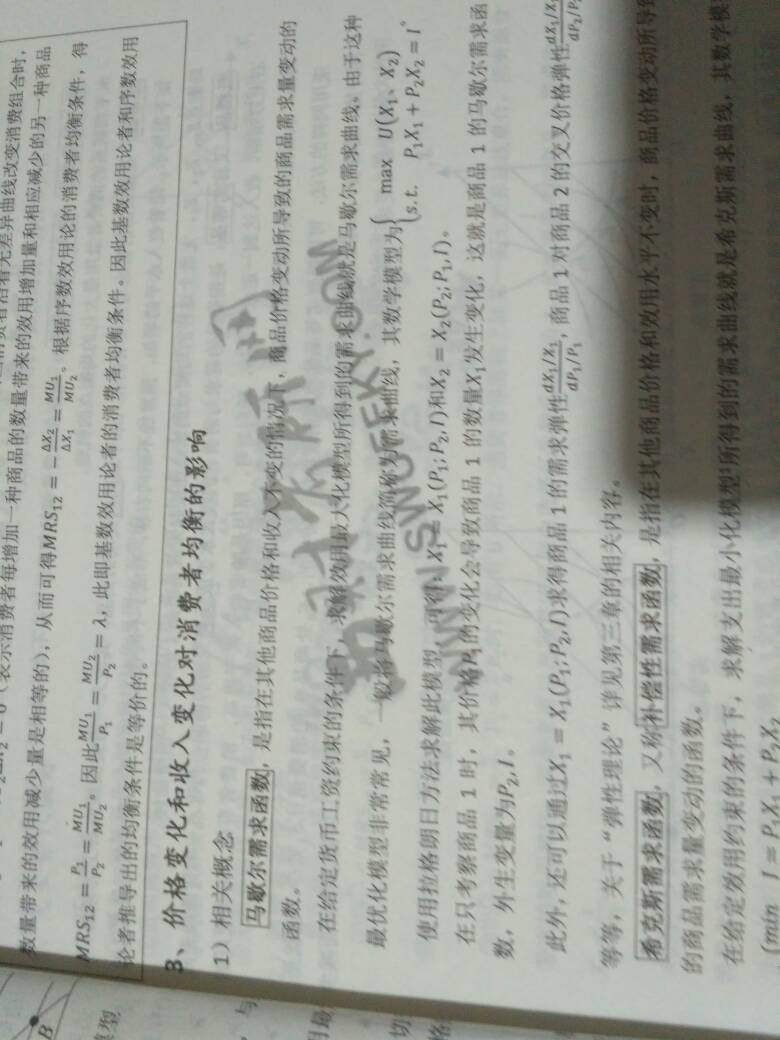 数量带来的效用减少量是相等的），从而可得MRS₁₂ = −ΔX₂/ΔX₁ = MU₁/MU₂。根据序数效用论的消费者均衡条件，得
MRS₁₂ = P₁/P₂ = MU₁/MU₂。因此MU₁/P₁ = MU₂/P₂ = λ，此即基数效用论者的消费者均衡条件。因此基数效用论者和序数效用
论者推导出的均衡条件是等价的。
3、价格变化和收入变化对消费者均衡的影响
1）相关概念
马歇尔需求函数，是指在其他商品价格和收入不变的情况下，商品价格变动所导致的商品需求量变动的
函数。
在给定货币工资约束的条件下，求解效用最大化模型所得到的需求曲线就是马歇尔需求曲线。由于这种
最优化模型非常常见，一般将马歇尔需求曲线简称为需求曲线，其数学模型为{max U(X₁、X₂)
s.t. P₁X₁ + P₂X₂ = I。
使用拉格朗日方法求解此模型，可得：X₁ = X₁(P₁; P₂, I)和X₂ = X₂(P₂; P₁, I)。
在只考察商品 1 时，其价格P₁的变化会导致商品 1 的数量X₁发生变化，这就是商品 1 的马歇尔需求函
数，外生变量为P₂, I。
此外，还可以通过X₁ = X₁(P₁; P₂, I)求得商品 1 的需求弹性dX₁/X₁/dP₁/P₁，商品 1 对商品 2 的交叉价格弹性dX₁/X₁/dP₂/P₂
等等，关于“弹性理论”详见第三章的相关内容。
希克斯需求函数，又称补偿性需求函数，是指在其他商品价格和效用水平不变时，商品价格变动所导致
的商品需求量变动的函数。
在给定效用约束的条件下，求解支出最小化模型所得到的需求曲线就是希克斯需求曲线，其数学模
{min I = P₁X₁ + P₂X₂
WWW.SWUFEKY.COM
B